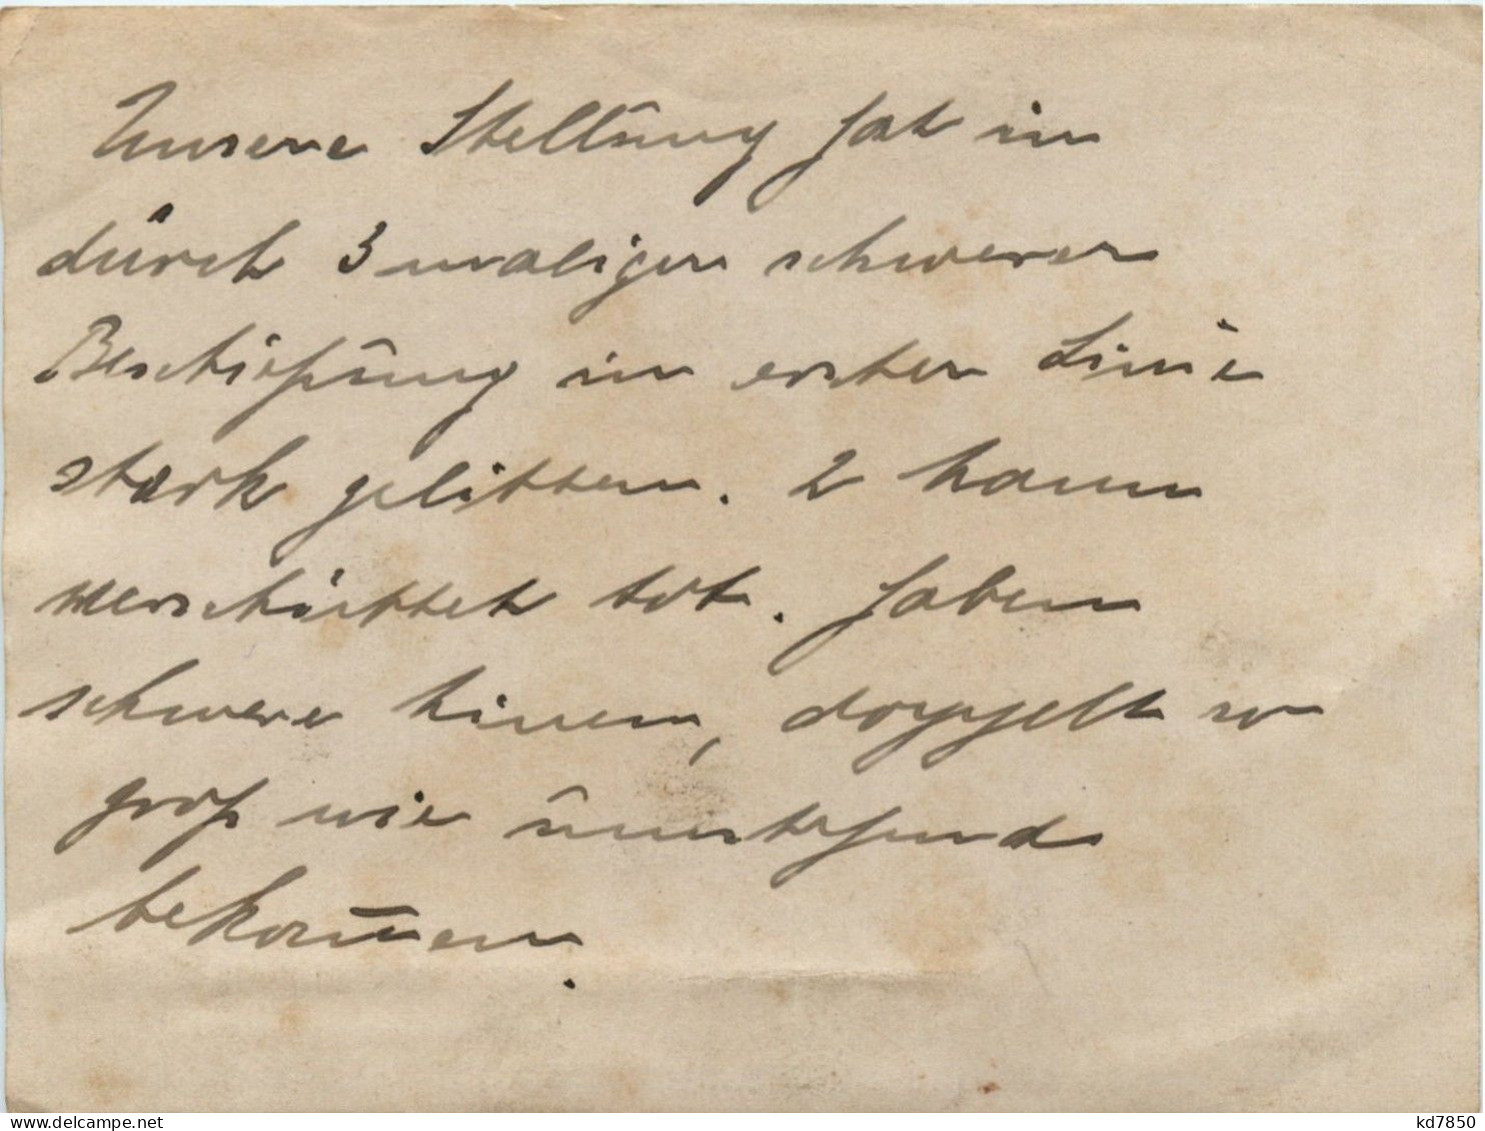 Unsere Stellung hat in
durch 3 maligen schwerer
Beschießung in erster Linie
stark gelitten. 2 Mann
verschüttet tot. Haben
schwere Minen, doppelt so
groß wie
bekom̅en.
www.delcampe.net
kd7850